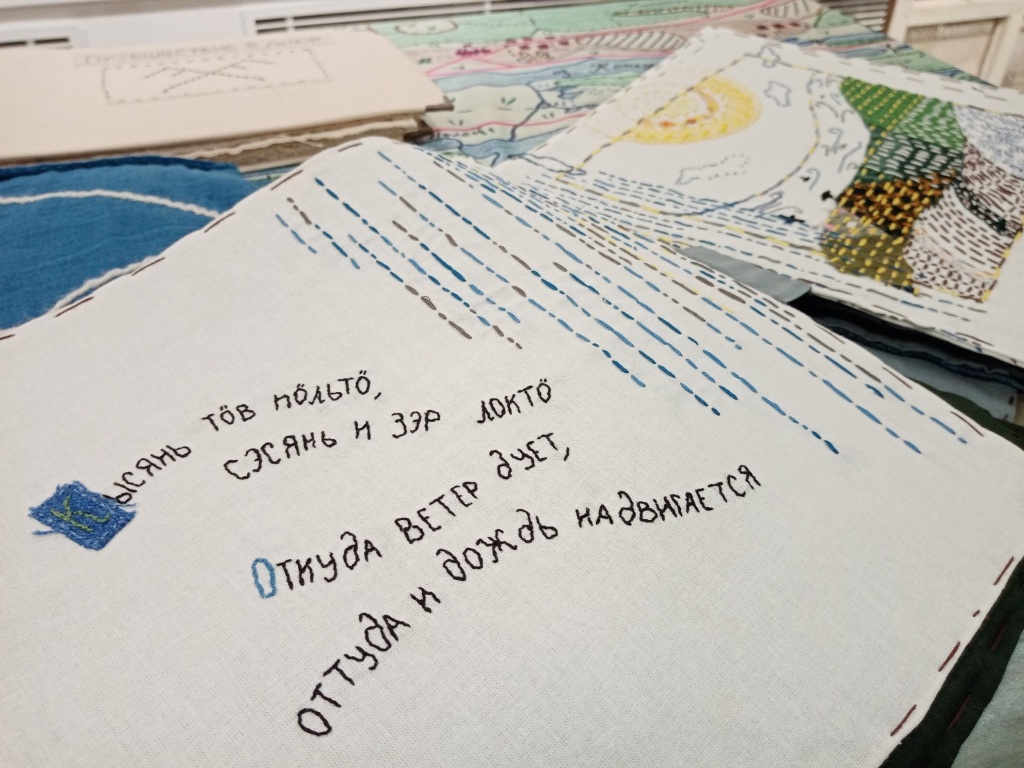 ПУТЕШЕСТВИЕ В
КЫСЯНЬ ТӦВ ПӦЛЬТӦ,
СЭСЯНЬ И ЗЭР ЛОКТӦ
ОТКУДА ВЕТЕР ДУЕТ,
ОТТУДА И ДОЖДЬ НАДВИГАЕТСЯ